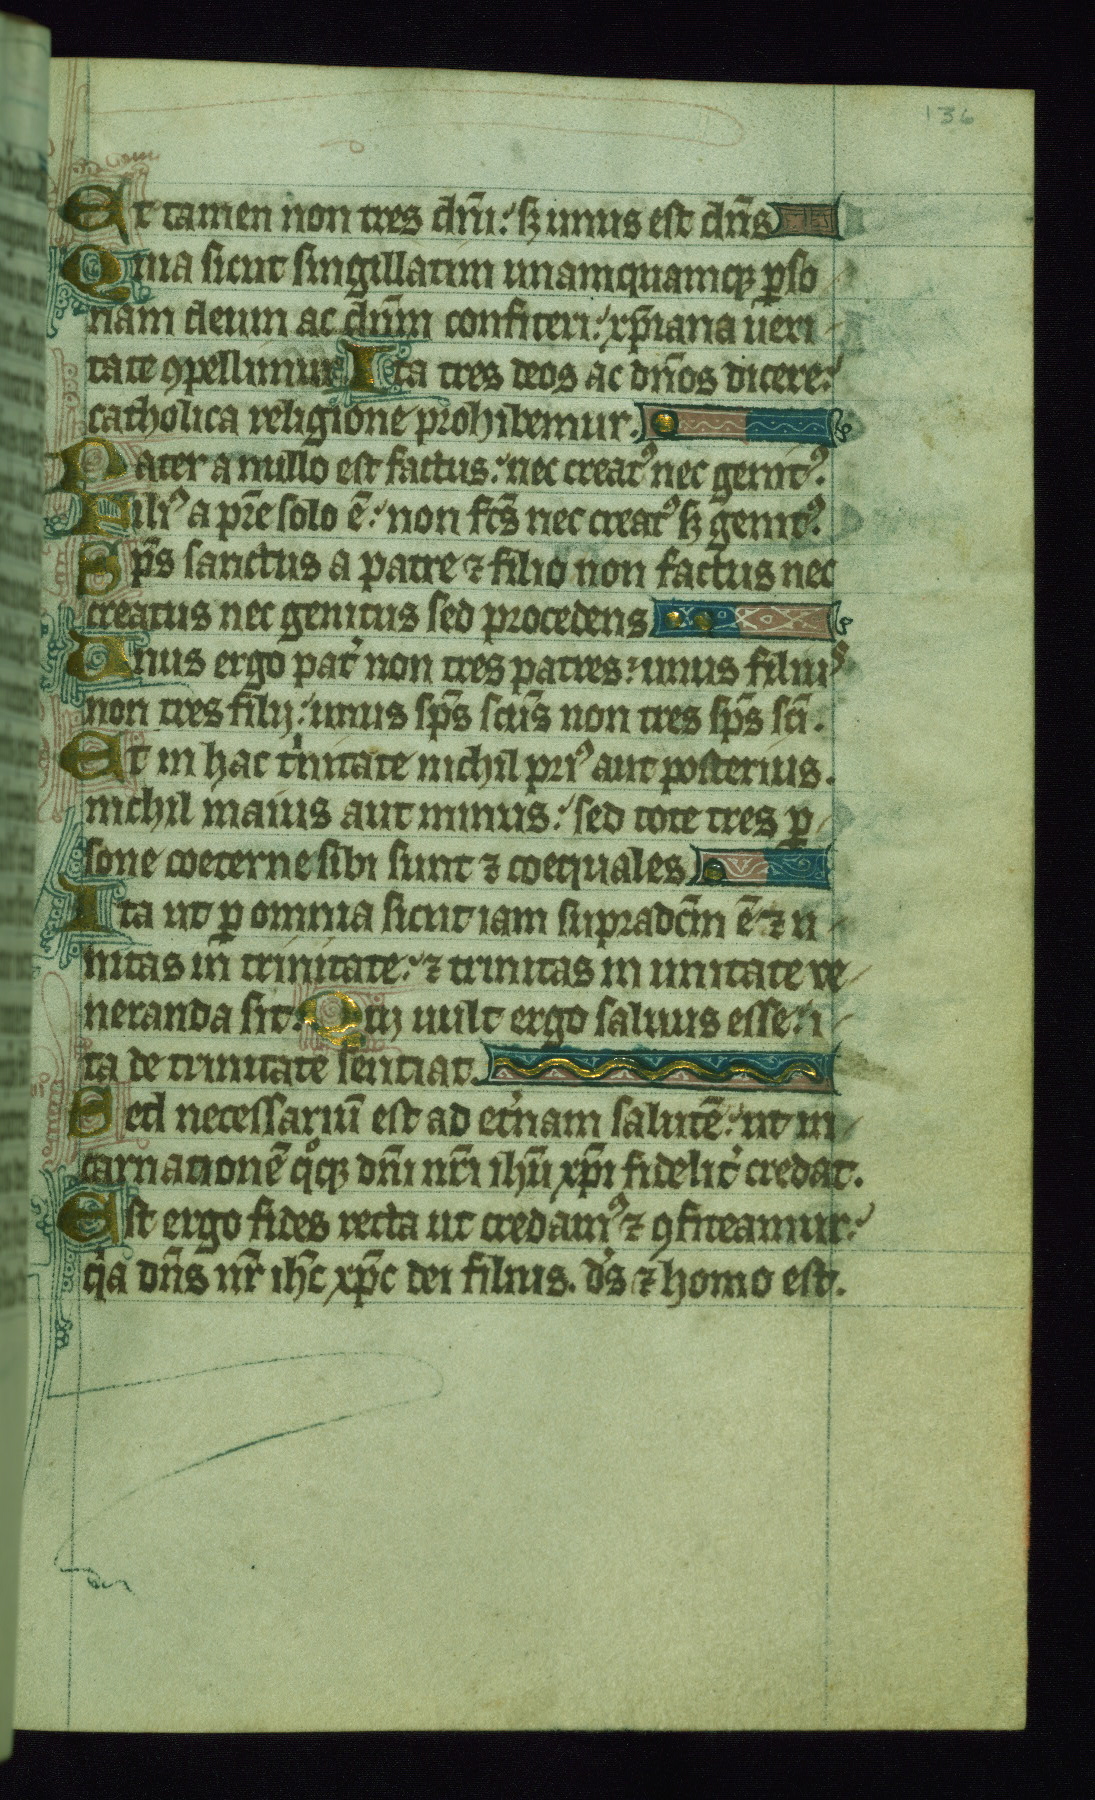 136
Et tamen non tres dn̄i: sꝫ unus est dn̄s
Quia sicut singillatim unamquamqꝫ ꝑso
nam deum ac dn̄m confiteri: xp̄iana ueri
tate ꝯpellimur Ita tres deos ac dn̄os dicere:
catholica religione prohibemur.
Pater a nullo est factus: nec creatꝰ nec genitꝰ.
Filiꝰ a pr̄e solo ē: non fcs̄ nec creatꝰ sꝫ genitꝰ.
Sp̄s sanctus a patre ⁊ filio non factus nec
creatus nec genitus sed procedens
Unus ergo pat͛ non tres patres: unus filiuˢ
non tres filij: unus sp̄s scūs non tres sp̄s scī.
Et in hac tͥnitate nichil priꝰ aut posterius.
nichil maius aut minus: sed tote tres ꝑ
sone coeterne sibi sunt ⁊ coequales
Ita ut ꝑ omnia sicut iam supradcm̄ ē ⁊ u
nitas in trinitate: ⁊ trinitas in unitate ve
neranda sit. Qui uult ergo saluus esse: i
ta de trinitate sentiat.
Sed necessariū est ad et͛nam salutē: ut in
carnationē qͦqꝫ dn̄i nr̄i ihū xp̄i fidelit͛ credat.
Est ergo fides recta ut credamꝰ ⁊ ꝯfiteamur:
qͥa dn̄s nr̄ ihc̄ xp̄c dei filius. ds̄ ⁊ homo est.